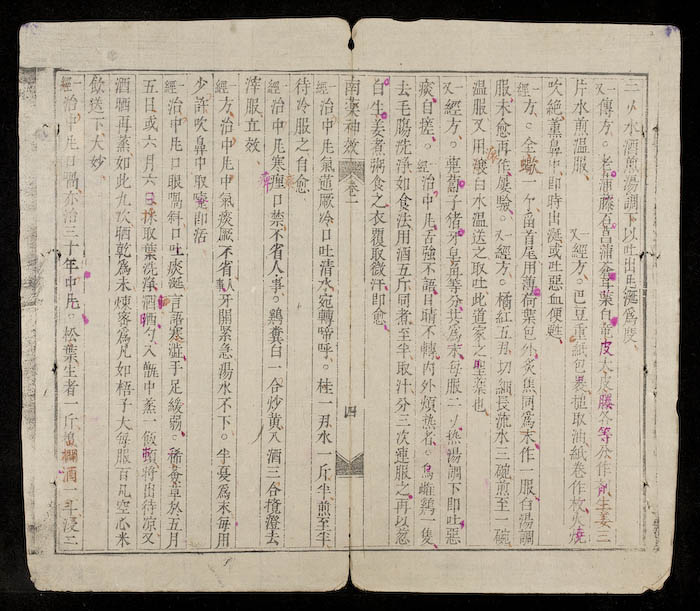 二𭕄水酒煎湯調下以吐出痰涎為度
又傳方。老蒲藤石菖蒲 皮大皮藤各等分作劑生姜三
片水煎溫服　又經方。巴豆重紙包裹搥取油紙卷作枚火燒
吹絶薰鼻中即時出涎或吐惡血便甦
經方。全蠍一个留首尾用薄荷葉包外炙焦同為末作一服白湯調
服未愈再作屢驗。又經方。橘紅五刄切細長流水三碗煎至一碗
溫服又用淡白水溫送之取吐此道家之聖藥也
又經方。萆薢子猪牙皂角等分共為末每服二𭕄熱湯調下即吐惡
痰自搓。經治中風舌強不語目睛不轉內外煩熱者。烏雌鷄一隻
去毛腸洗淨如食法用酒五斤同煮至半取汁分三次連服之再以葱
白生姜煮粥食之衣覆取微汗即愈
南藥神效卷一　四
經治中風氣逆厥冷口吐清水宛轉啼呼。桂一刄水一斤半煎至半
待冷服之自愈
經治中風寒痙口禁不省人事。鷄糞白一合炒黃入酒三合攪澄去
滓服立效
經方治中風中氣痰厥不省人事牙關緊急湯水不下。半夏為末每用
少許吹鼻中取嚏即活
經治中風口眼喎斜口吐痰涎言語蹇澁手足緩弱。稀薟草於五月
五日或六月六日採取葉洗淨酒晒勺入甑中蒸一飯頓將出待凉又
酒晒再蒸如此九次晒乾為末煉密為凡如梧子大每服百凡空心米
飲送下大妙
經治中風口喎亦治三十年中風。松葉生者一斤搗爛酒一斗浸二